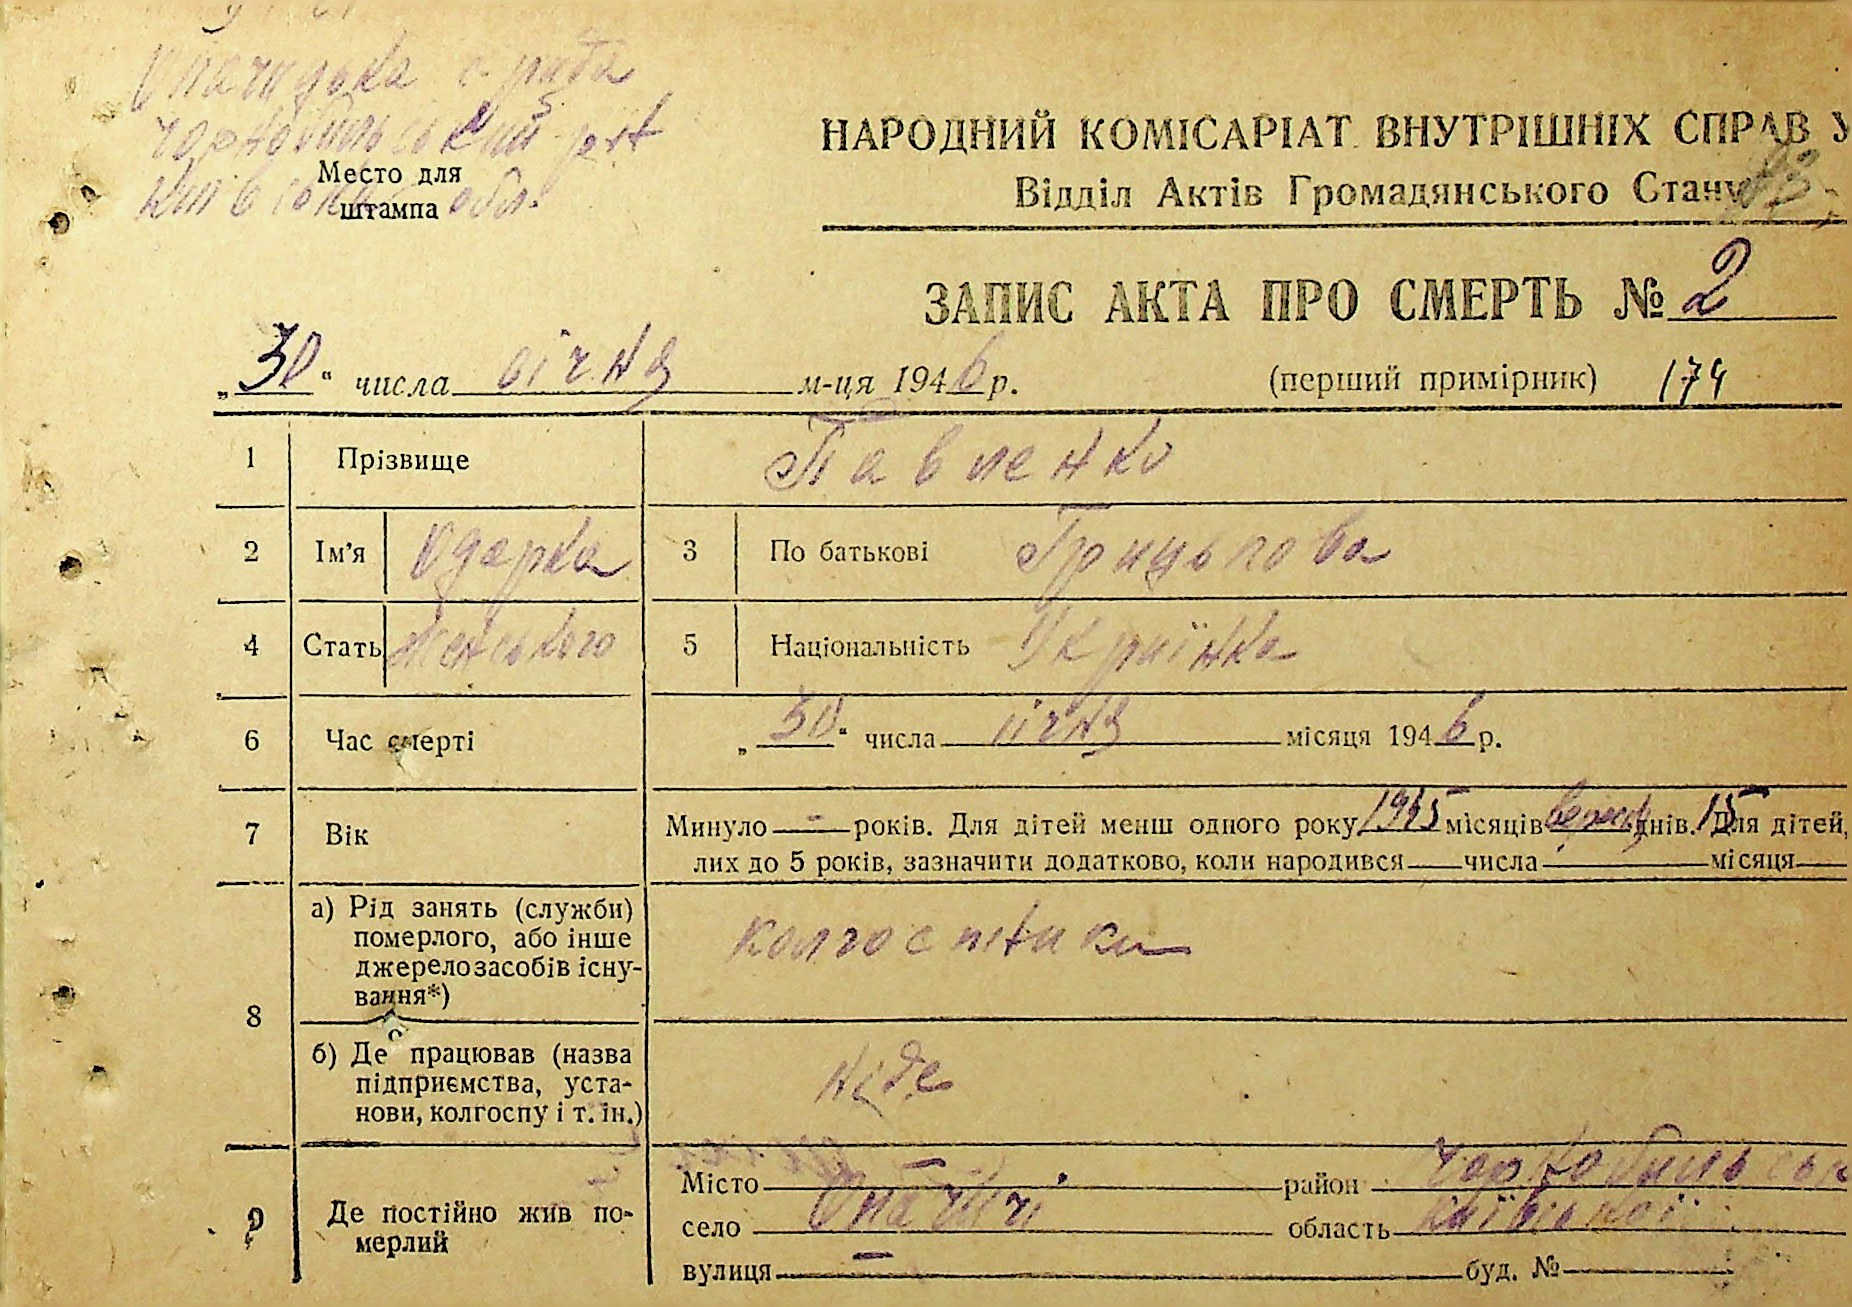 Опачицька с рада
Чорнобильський р-н
Київська обл.
Место для
штампа
НАРОДНИЙ КОМІСАРІАТ ВНУТРІШНІХ СПРАВ У
Відділ Актів Громадянського Стану
ЗАПИС АКТА ПРО СМЕРТЬ № 2
„30“ числа січня м-ця 1946 р.
(перший примірник) 174
1 Прізвище Павленко
2 Ім'я Одарка 3 По батькові Грицькова
4 Стать женського 5 Національність Українка
6 Час смерті „30“ числа січня місяця 1946 р.
7 Вік Минуло - років. Для дітей менш одного року 1945 місяців вересня днів. 15 Для дітей,
лих до 5 років, зазначити додатково, коли народився числа місяця
8 а) Рід занять (служби)
померлого, або інше
джерело засобів існу-
вання*)
колгоспники
б) Де працював (назва
підприємства, уста-
нови, колгоспу і т. ін.)
ніде
9 Де постійно жив по-
мерлий
Місто — район Чорнобильськ
село Опачичі область Київської
вулиця — буд. №